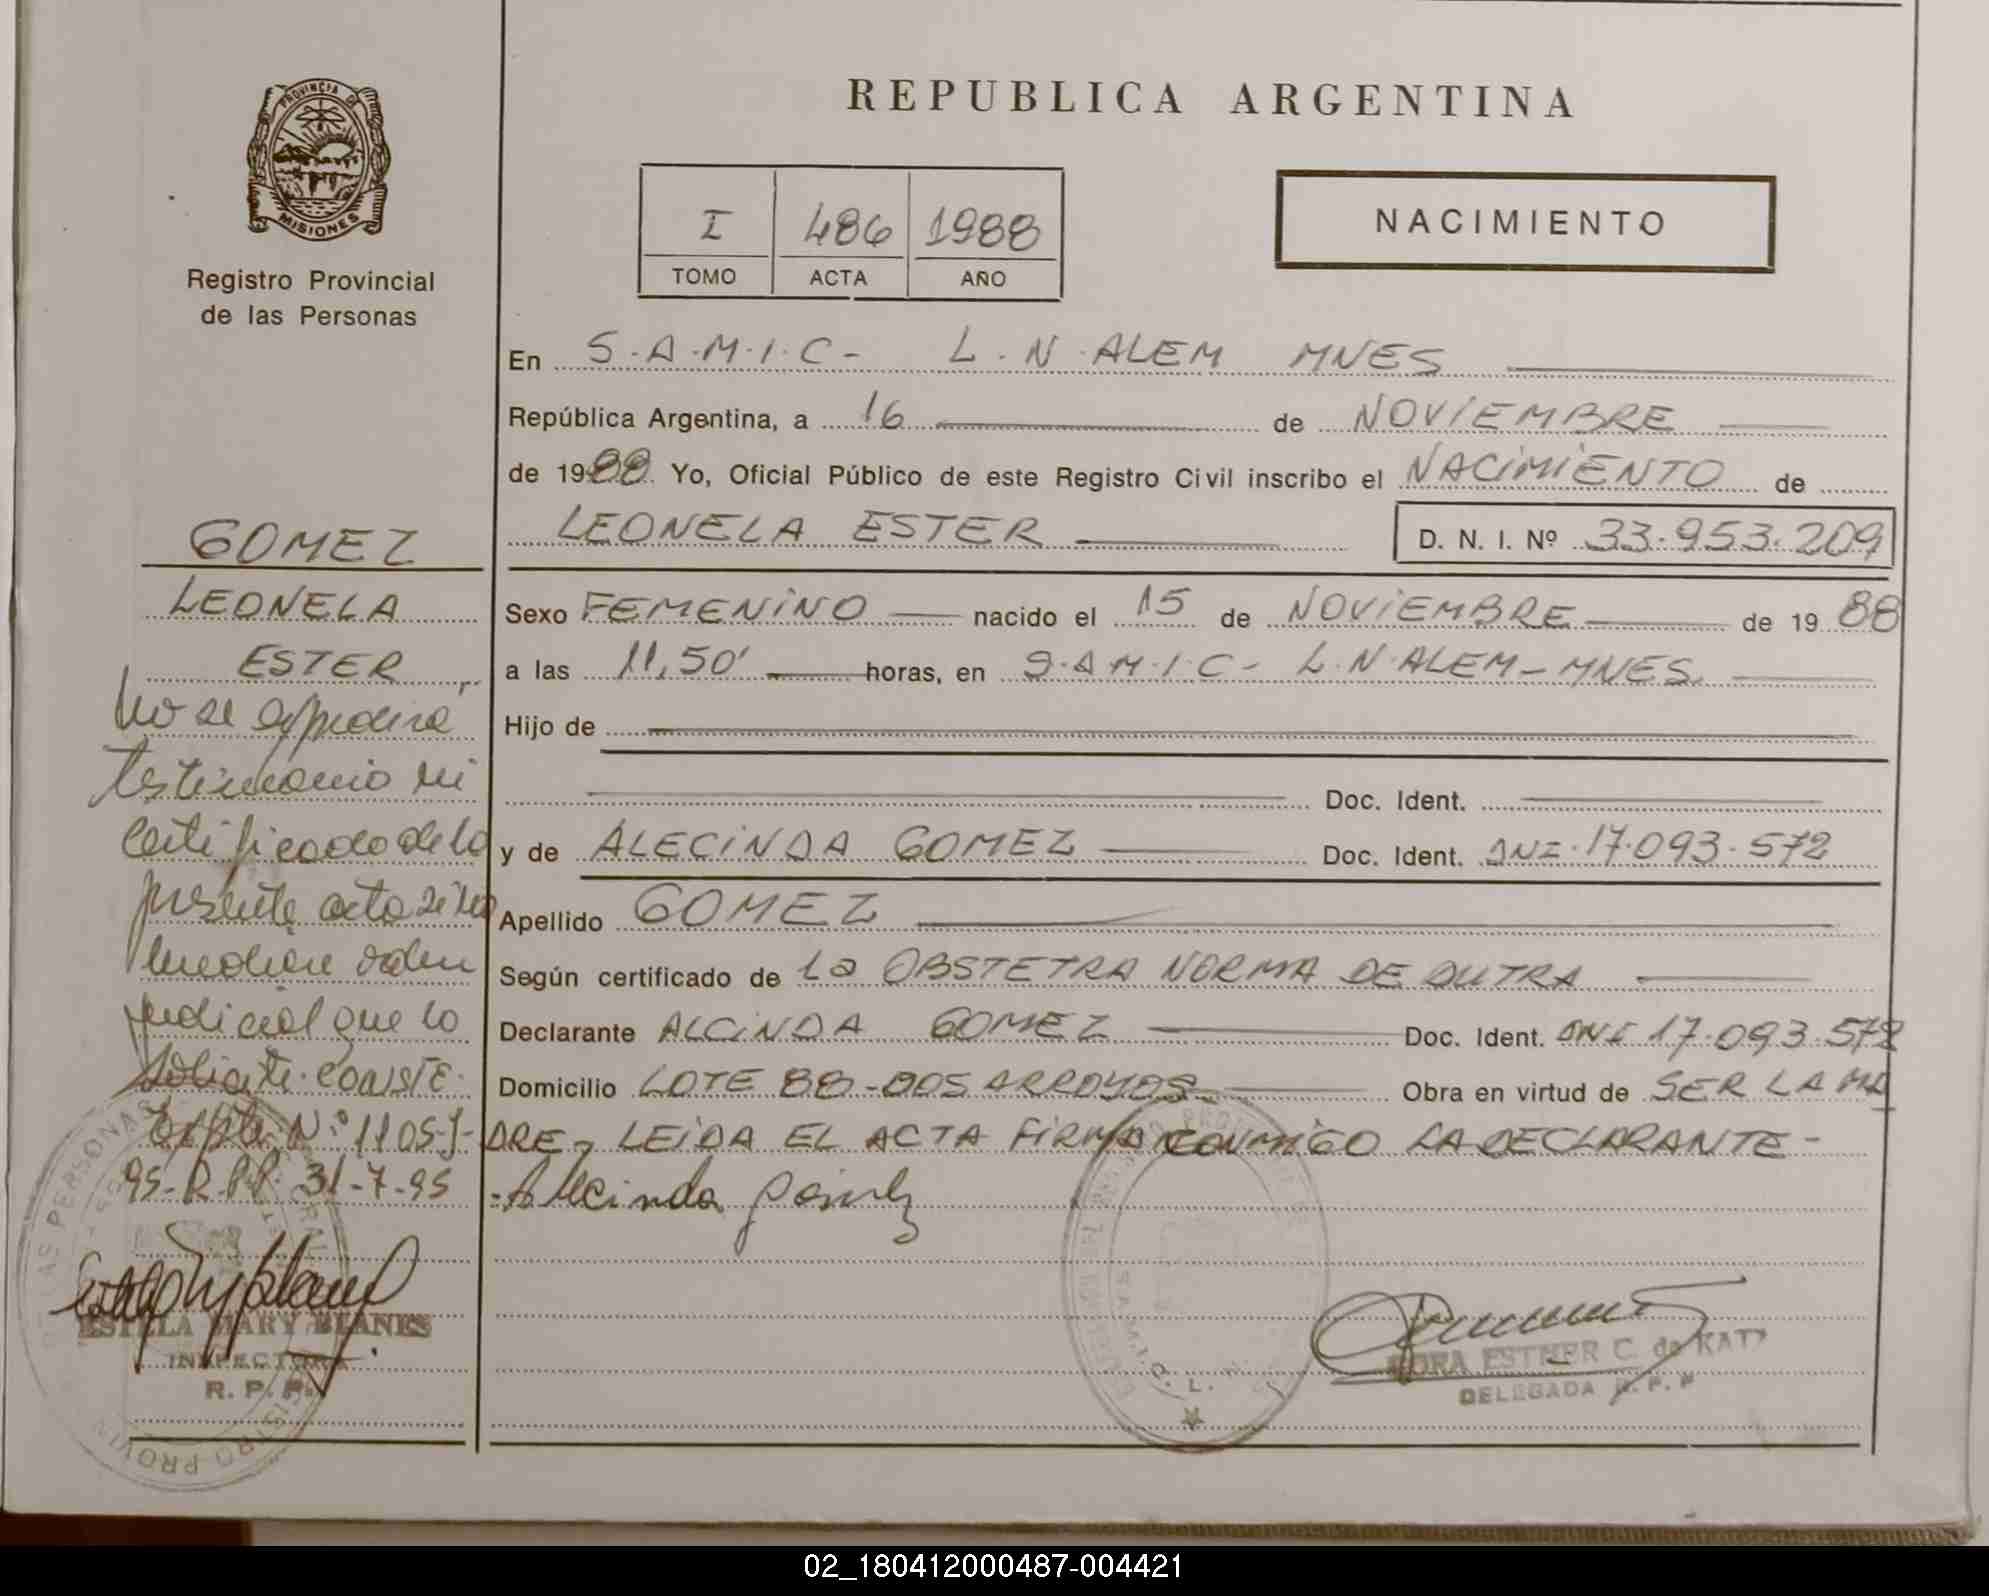 REPUBLICA ARGENTINA
PROVINCIA DE
MISIONES
Registro Provincial
de las Personas
I 486 1988
TOMO ACTA AÑO
NACIMIENTO
En S.A.M.I.C- L.N.ALEM MNES
República Argentina, a 16 de NOVIEMBRE
de 1988. Yo, Oficial Público de este Registro Civil inscribo el NACIMIENTO de
LEONELA ESTER D. N. I. Nº 33.953.209
Sexo FEMENINO nacido el 15 de NOVIEMBRE de 1988
a las 11,50' horas, en S.A.M.I.C- L.N.ALEM-MNES.
Hijo de
Doc. Ident.
y de ALECINDA GOMEZ Doc. Ident. DNI.17.093.572
Apellido GOMEZ
Según certificado de La OBSTETRA NORMA DE DUTRA
Declarante ALCINDA GOMEZ Doc. Ident. DNI 17.093.572
Domicilio LOTE 88-DOS ARROYOS Obra en virtud de SER LA MA
DRE, LEIDA EL ACTA FIRMA CONMIGO LA DECLARANTE-
Alecinda
GOMEZ
LEONELA
ESTER
No se expedira
testimonio ni
certificado de la
presente acta si no
mediare orden
judicial que lo
solicite. CONSTE.
Expte. N:º 1105-J-
95-R.P.P. 31-7-95
ESTELA MARY BLANES
INSPECTORA
R. P. P.
ESTHER C. de KATZ
DELEGADA R. P. P
02_180412000487-004421